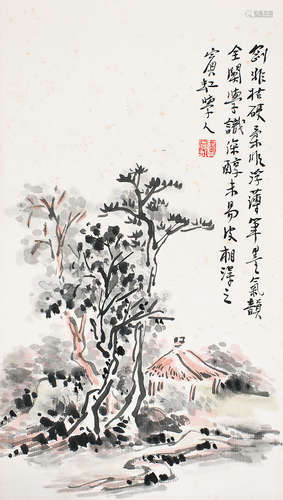 剛非枯硬柔非浮薄筆墨氣韻
全關學識深醇未易皮相得之
賓虹學人